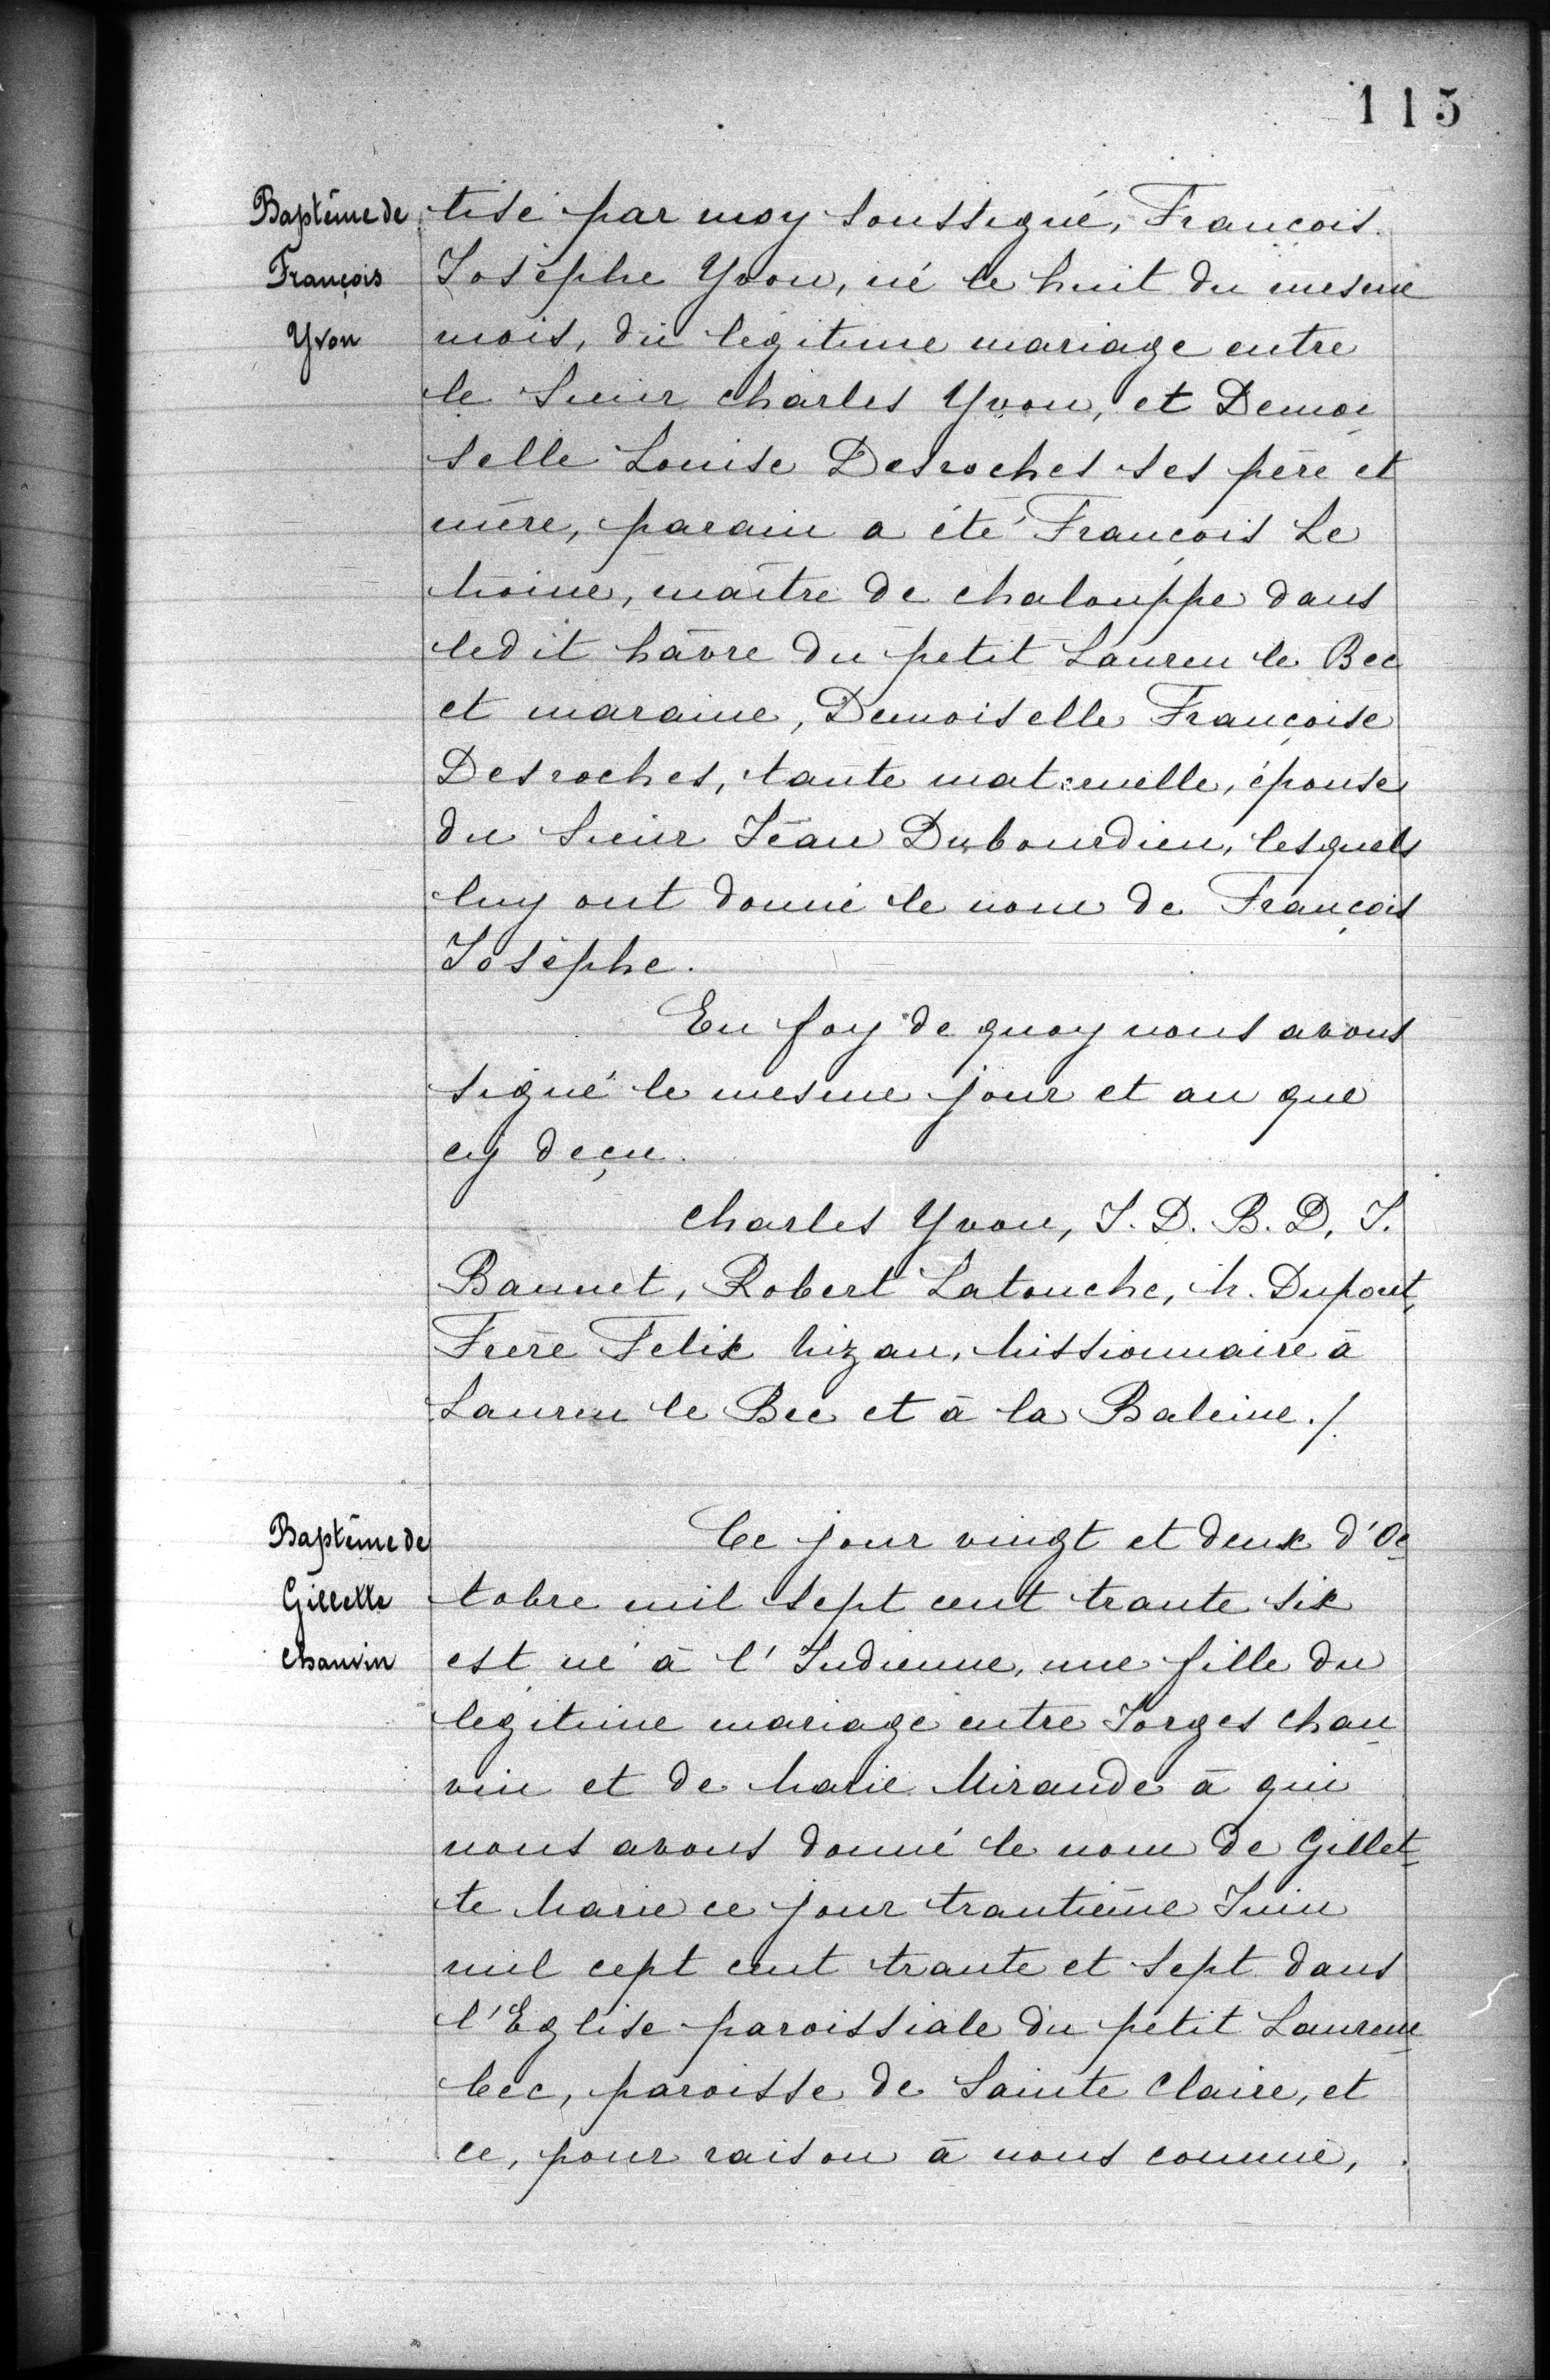 115
Baptême de
François
Yvon
tisé par moy soussigné, François
Josèphe Yvon, né le huit du mesme
mois, du légitime mariage entre
le Sieur Charles Yvon, et Demoi
selle Louise Desroches ses père et
mère, parain a été François Le
Moine, maître de chalouppe dans
ledit hâvre du petit Lauren le Bec
et maraine, Demoiselle Françoise
Desroches, tante maternelle, épouse
du Sieur Jean Dubourdieu, lesquels
luy ont donné le nom de François
Josèphe.
En foy de quoy nous avons
signé le mesme jour et an que
cy deçu.
Charles Yvon, J. D. B. D, J.
Bannet, Robert Latouche, M. Dupont,
Frère Felix Mizan, Missionnaire à
Lauren le Bec et à la Baleine./.
Baptême de
Gillette
Chauvin
Ce jour vingt et deux d'Oc
tobre mil sept cent trante six
est né à l'Indienne, une fille du
légitime mariage entre Jorges Chau
vin et de Marie Mirande à qui
nous avons donné le nom de Gillet
te Marie ce jour trantième Juin
mil cept cent trante et sept dans
l'Eglise paroissiale du petit Lauren
bec, paroisse de Sainte Claire, et
ce, pour raison à nous connue,